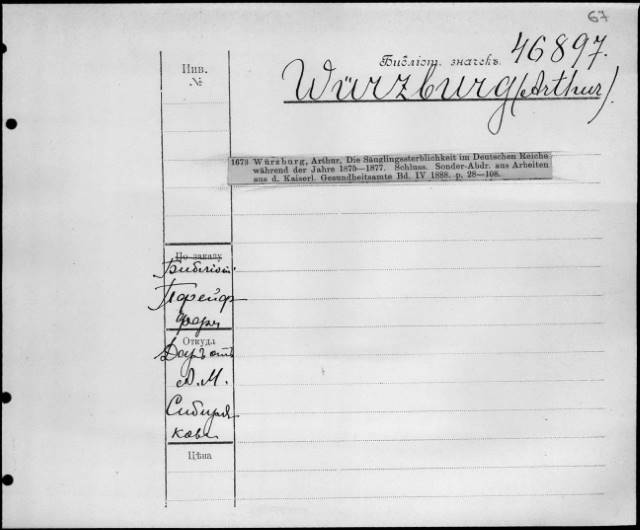 67
Библіот. значекъ 46897.
Инв.
№
Würzburg (Arthur).
1673 Würzburg, Arthur, Die Säuglingssterblichkeit im Deutschen Reiche
während der Jahre 1875—1877. Schluss. Sonder-Abdr. aus Arbeiten
aus d. Kaiserl. Gesundheitsamte Bd. IV 1888. p. 28—108.
По заказу
Библіот.
Пфейф
фера
Откуда
Даръ отъ
А. М.
Сибиря
кова
Цѣна